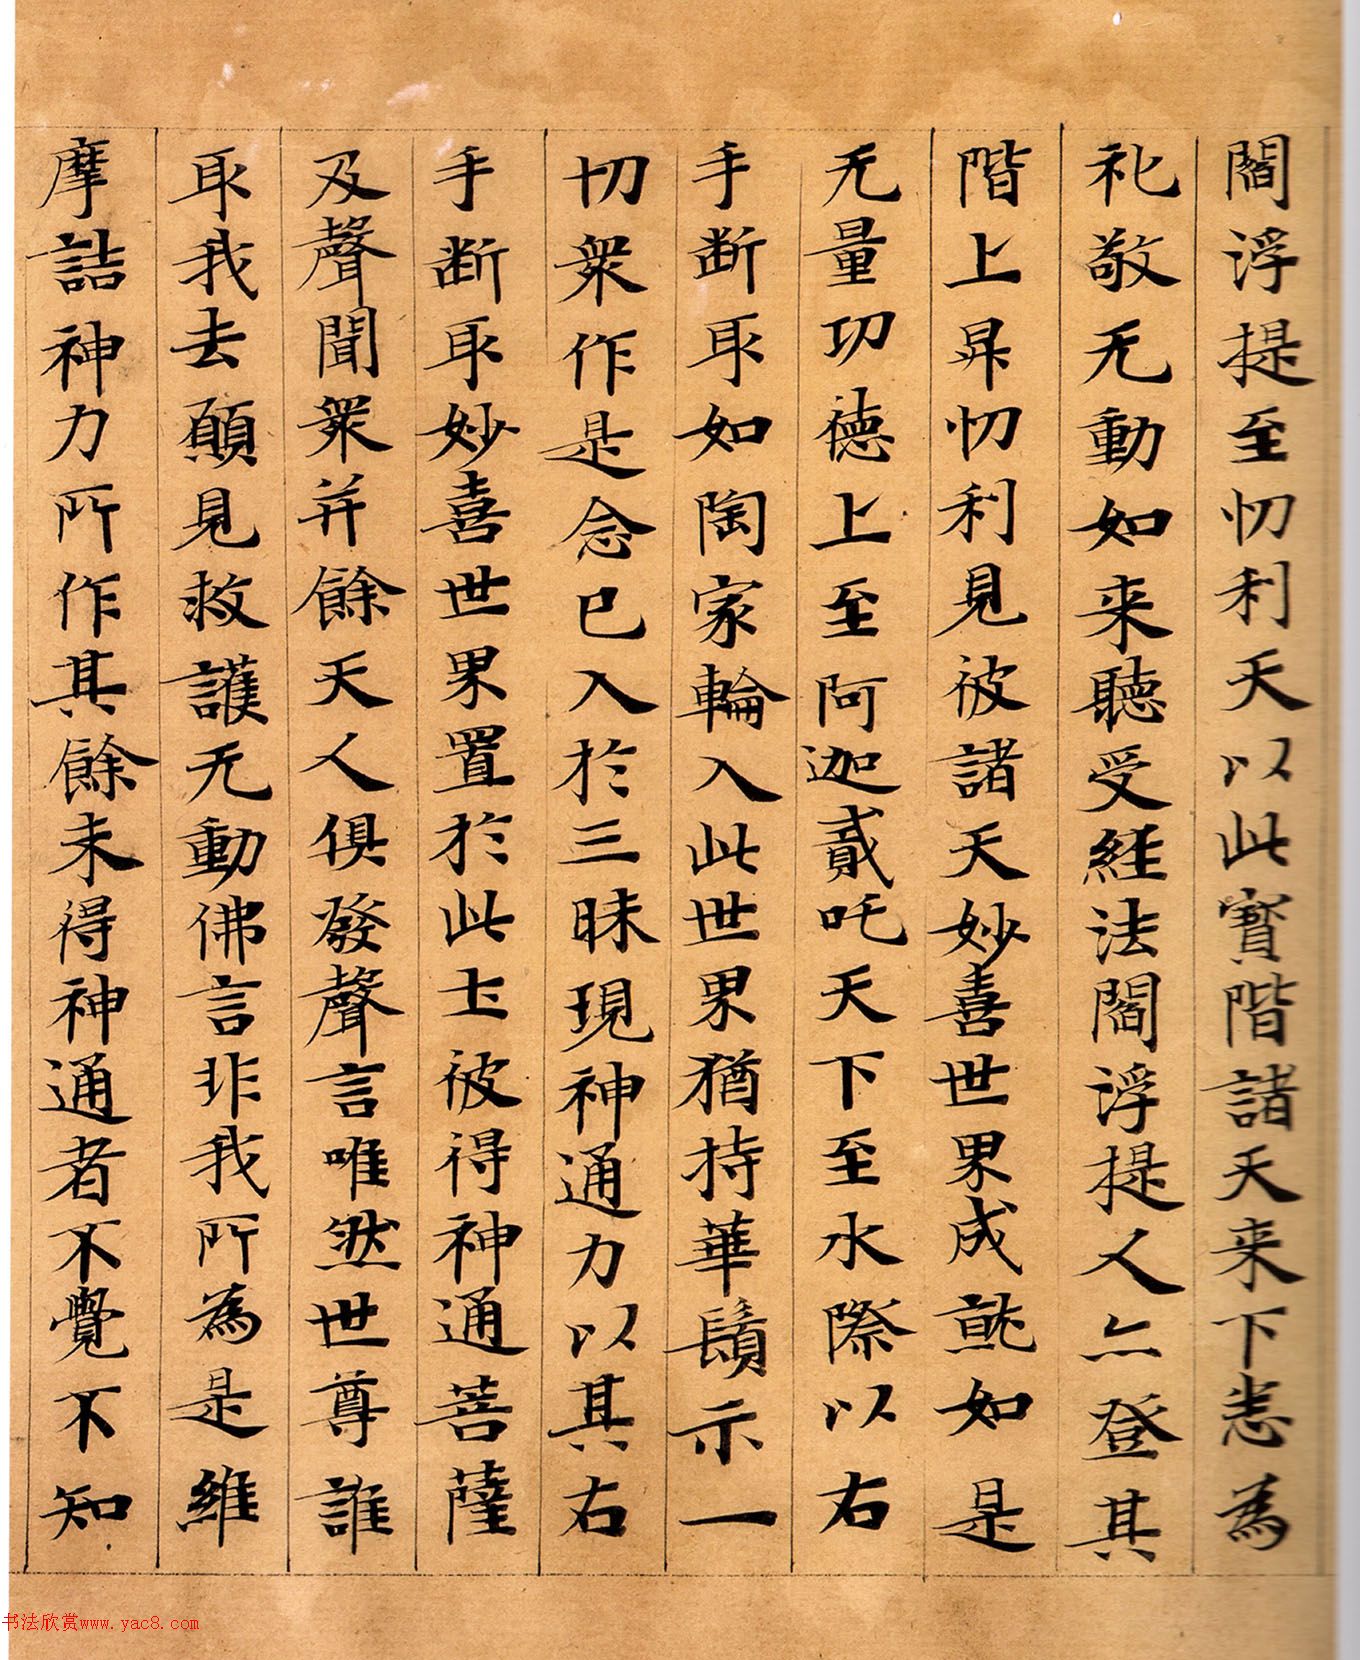 閻浮提至忉利天以此寳階諸天来下悉為
礼敬无動如来聽受經法閻浮提人亦登其
階上昇忉利見彼諸天妙喜世界成就如是
无量功德上至阿迦貳吒天下至水際以右
手断取如陶家輪入此世界猶持華鬘示一
切衆作是念已入於三昧現神通力以其右
手断取妙喜世界置於此土彼得神通菩薩
及聲聞衆并餘天人俱發聲言唯然世尊誰
取我去願見救護无動佛言非我所為是維
摩詰神力所作其餘未得神通者不覺不知
书法欣赏www.yac8.com